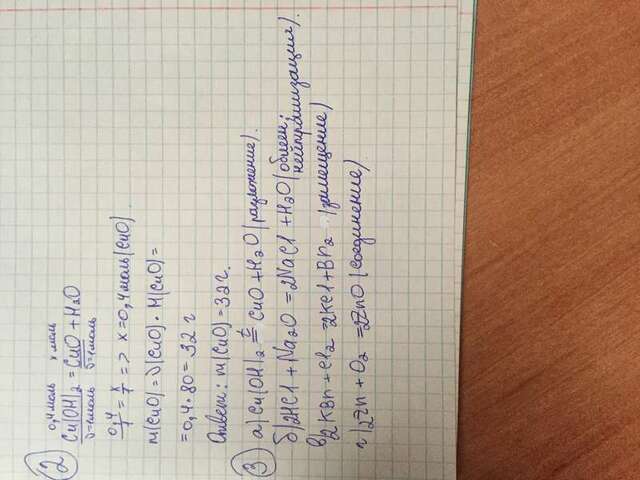 2
0,4 моль x моль
Cu(OH)2 = CuO + H2O
δ=1моль δ=1моль
0,4/1 = x/1 => x=0,4моль(CuO).
m(CuO)=ν(CuO)·M(CuO)=
=0,4·80=32 г
Ответ: m(CuO)=32г.
3 а) Cu(OH)2 t= CuO+H2O(разложение).
б) 2HCl+Na2O=2NaCl+H2O(обмен;
нейтрализация).
в) 2KBr+Cl2=2KCl+Br2 (замещение)
г) 2Zn+O2=2ZnO(соединение).